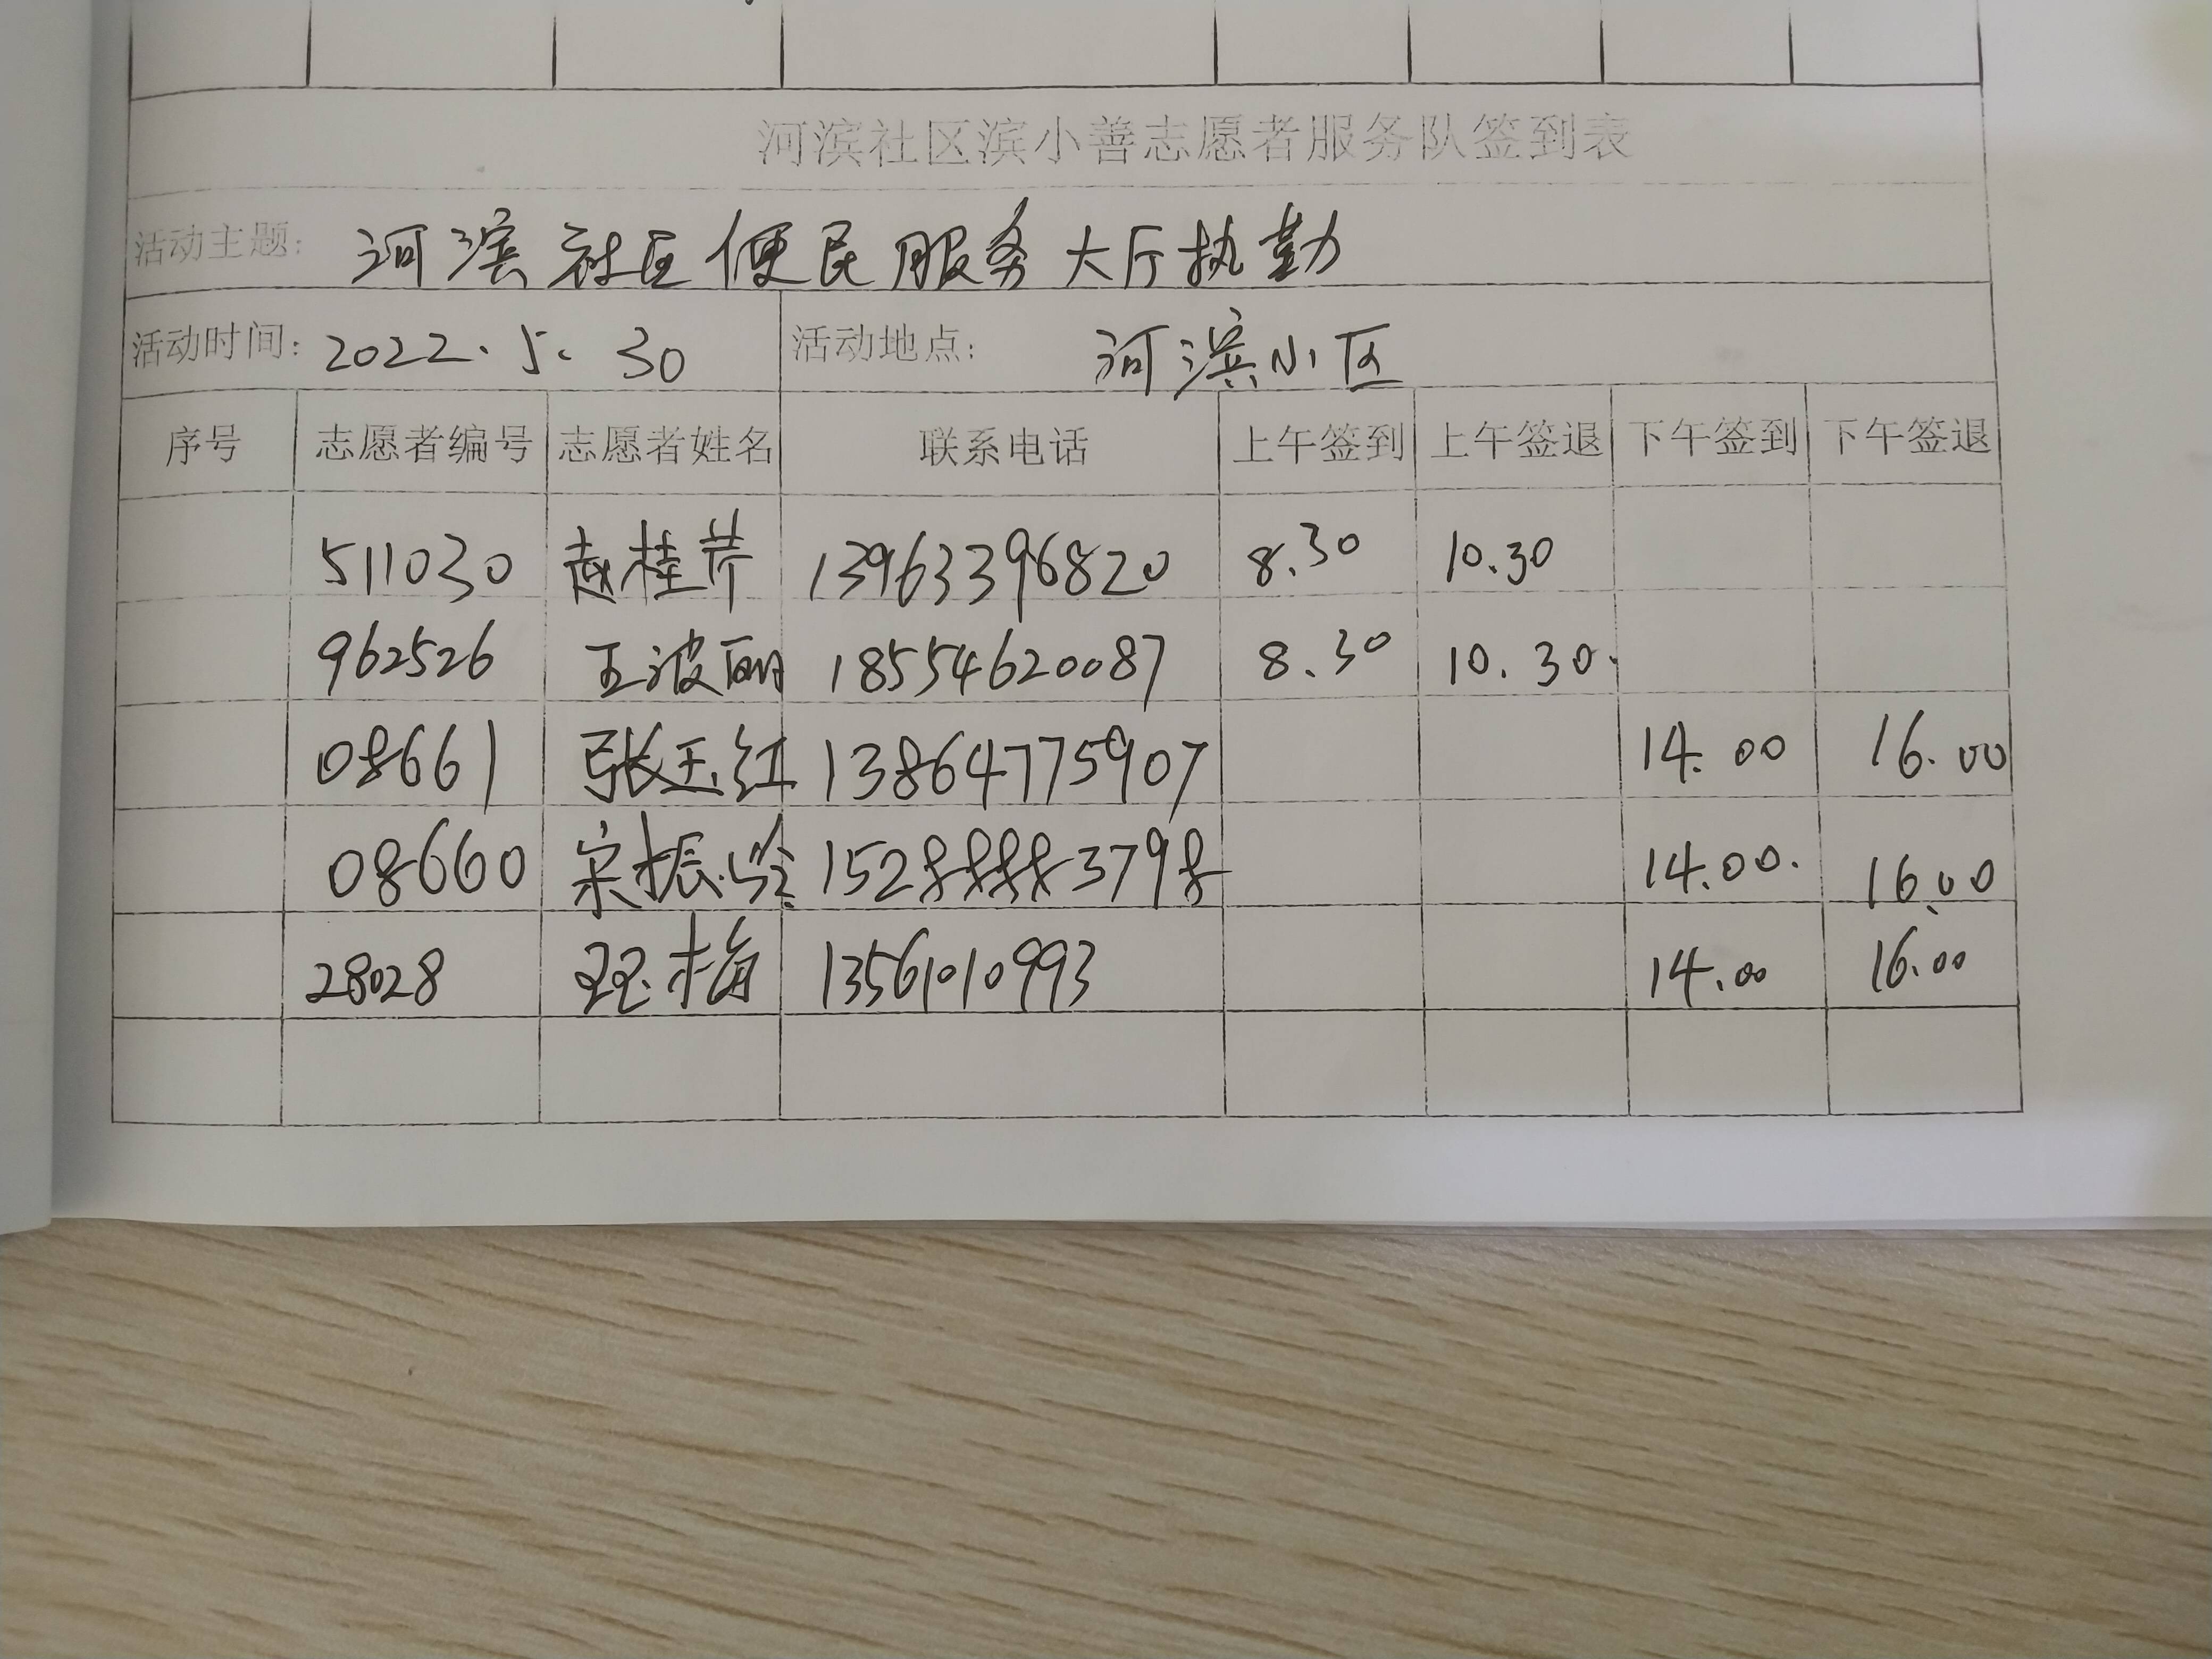 河滨社区滨小善志愿者服务队签到表
活动主题: 河滨社区便民服务大厅执勤
活动时间: 2022.5.30 活动地点: 河滨小区
序号 志愿者编号 志愿者姓名 联系电话 上午签到 上午签退 下午签到 下午签退
511030 赵桂芹 13963396820 8.30 10.30
962526 王波丽 18554620087 8.30 10.30.
08661 张玉红 13864775907 14.00 16.00
08660 宋振玲 15288883798 14.00. 16.00
28028 梅 13561010993 14.00 16.00